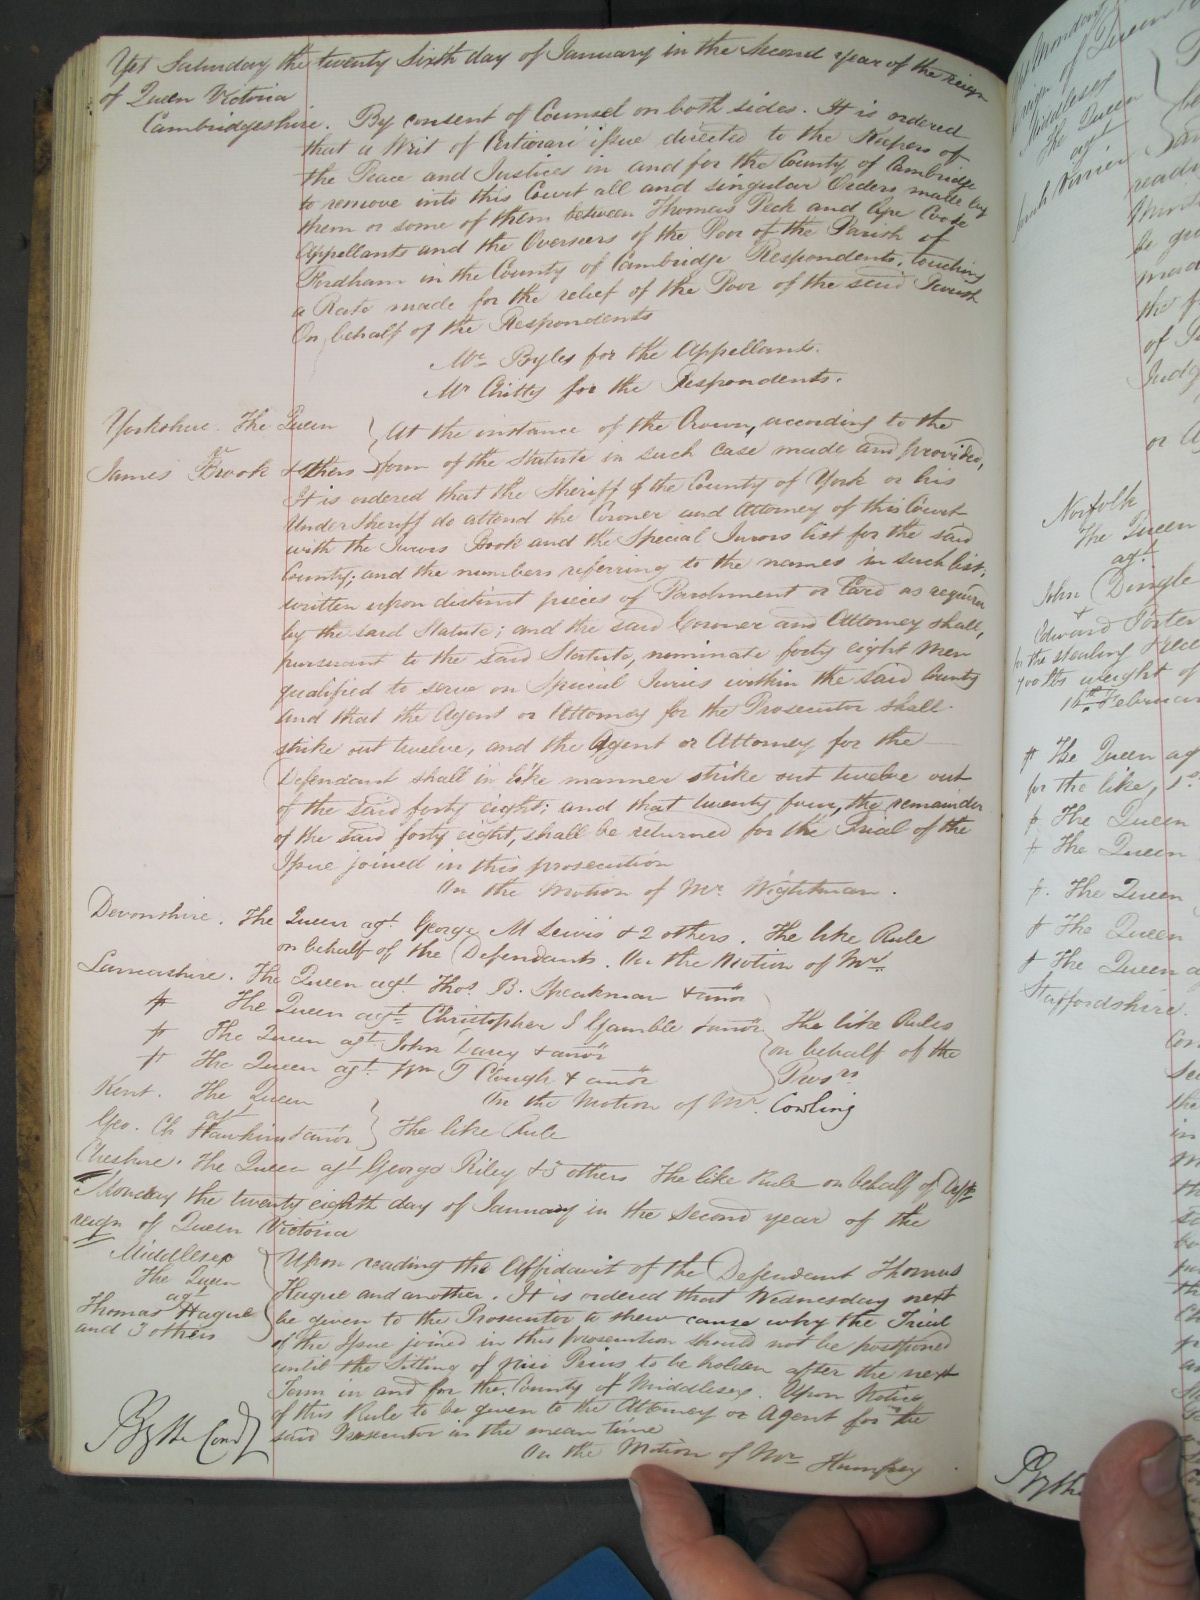 Yet Saturday the twenty Sixth day of January in the Second year of the reign
of Queen Victoria
Cambridgeshire. By consent of Counsel on both sides. It is ordered
that a Writ of Certiorari issue directed to the Keepers of
the Peace and Justices in and for the County of Cambridge
to remove into this Court all and singular Orders made by
them or some of them between Thomas Peck and Coode
Appellants and the Overseers of the Poor of the Parish of
Fordham in the County of Cambridge Respondents, touching
a Rate made for the relief of the Poor of the said Parish
On behalf of the Respondents
Mr Byles for the Appellants.
Mr Chitty for the Respondents.
Yorkshire. The Queen } At the instance of the Crown, according to the
James Brook & others form of the Statute in such case made and provided,
It is ordered that the Sheriff of the County of York or his
Under Sheriff do attend the Coroner and Attorney of this Court
with the Jurors Book and the Special Jurors list for the said
County; and the numbers referring to the names in such list,
written upon distinct pieces of Parchment or Card as required
by the said Statute; and the said Coroner and Attorney shall,
pursuant to the said Statute, nominate forty eight Men
qualified to serve on Special Juries within the said County
and that the Agent or Attorney for the Prosecutor shall
strike out twelve, and the Agent or Attorney for the
Defendant shall in like manner strike out twelve out
of the said forty eight; and that twenty four, the remainder
of the said forty eight, shall be returned for the Trial of the
Issue joined in this prosecution
On the Motion of Mr Wightman.
Devonshire. The Queen agt George M Lewis & 2 others. The like Rule
on behalf of the Defendants. On the Motion of Mr
Lancashire. The Queen agt Thos B. Speakman & anor
The Queen agt Christopher J Gamble & anor } The like Rules
The Queen agt John Darcy & anor on behalf of the
The Queen agt Wm T Clough & anor Prosrs
On the Motion of Mr. Cowling
Kent. The Queen
agt
Geo. Ch Hawkins & anor } The like Rule
Cheshire. The Queen agt George Riley & 5 others The like Rule on behalf of Defts
Monday the twenty eighth day of January in the Second year of the
reign of Queen Victoria
Middlesex
The Queen
agt
Thomas Hague
and 3 others
Upon reading the Affidavit of the Defendant Thomas
Hague and another. It is ordered that Wednesday next
be given to the Prosecutor to shew cause why the Trial
of the Issue joined in this prosecution should not be postponed
until the Sitting of Nisi Prius to be holden after the next
Term in and for the County of Middlesex. Upon Notice
of this Rule to be given to the Attorney or Agent for the
said Prosecutor in the mean time
On the Motion of Mr Humfrey
Norfolk
The Queen
agt
John Dingle
&
Edward Porter
for the stealing
weight of
The Queen ag
for the like,
The Queen
The Queen
The Queen
The Queen
The Queen a
Staffordshire.